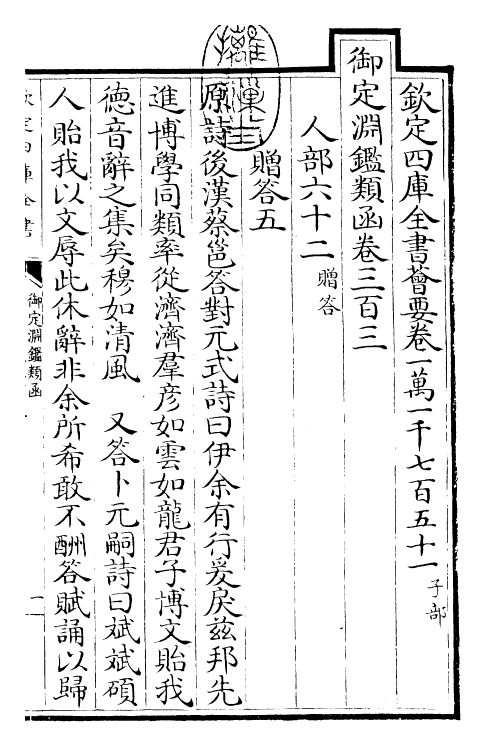 欽定四庫全書薈要卷一萬一千七百五十一子部
御定淵鑑類函卷三百三
人部六十二贈答
贈答五
原詩後漢蔡邕答對元式詩曰伊余有行爰戾兹邦先
進博學同類率從濟濟羣彦如雲如龍君子博文貽我
德音辭之集矣穆如清風　又答卜元嗣詩曰斌斌碩
人貽我以文辱此休辭非余所希敢不酬答賦誦以歸
欽定四庫全書
御定淵鑑類函
一